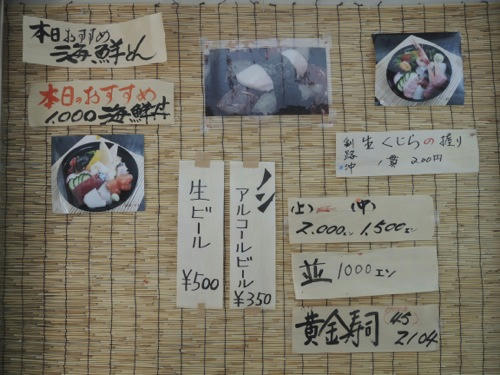 本日おすすめ
海鮮めん
本日のおすすめ
1.000 海鮮丼
釧路沖
生くじらの握り
1貫 200円
生ビール
¥500
ノンアルコールビール
¥350
(上) (中)
2.000 1.500エン
並 1000エン
黄金寿司
45
2104